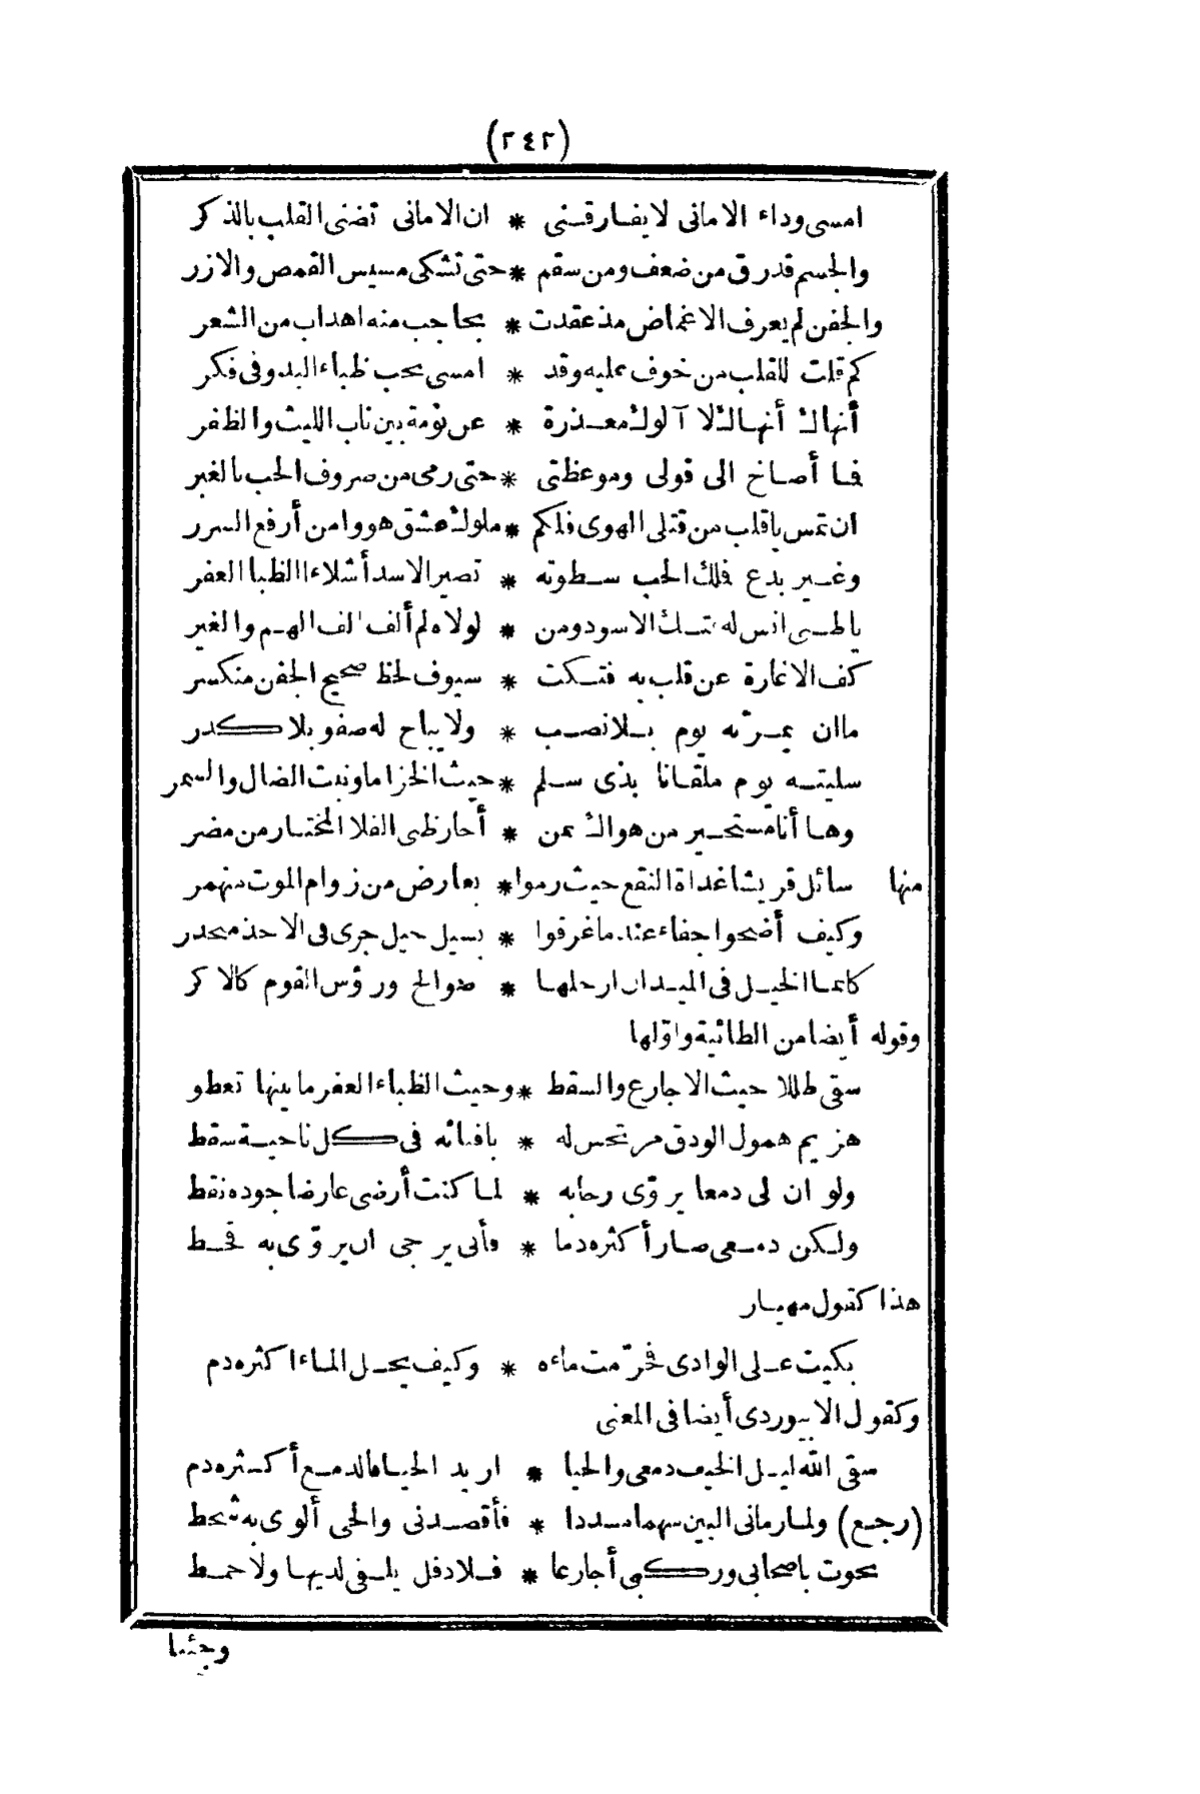 (٢٤٢)
امسى وداء الامانى لا يفارقنى * ان الامانى تضنى القلب بالذكر
والجسم قد رق من ضعف ومن سقم * حتى تشكى مسيس القمص والازر
والجفن لم يعرف الاغماض مذ عقدت * بحاجب منه اهداب من الشعر
كم قلت للقلب من خوف عليه وقد * امسى بحب ظباء البدو فى فكر
أنهاك أنهاك لا آلوك معذرة * عن نومة بين ناب الليث والظفر
فما أصاخ الى قولى وموعظتى * حتى رمى من صروف الحب بالغير
ان تمس ياقلب من قتلى الهوى فلكم * ملوك عشق هووا من أرفع السرر
وغير بدع فلك الحب سطوته * تصير الاسد أشلاء الظبا العفر
ياظبى انس له فتك الاسود ومن * لولاه لم ألف الف الهم والغير
كف الاغارة عن قلب به فتكت * سيوف لحظ صحيح الجفن منكسر
ماان يمر به يوم بلا نصب * ولا يباح له صفو بلا كدر
سليته يوم ملقانا بذى سلم * حيث الخزاما ونبت الضال والسمر
وها أنا مستجير من هواك بمن * أجار ظبى الفلا المختار من مضر
منها سائل قريشا غداة النقع حيث رموا * بعارض من زوام الموت منهمر
وكيف أضحوا جفاء عند ما غرقوا * بسيل خيل جرى فى الاخذ منحدر
كانما الخيل فى الميدان ارجلها * صوالج ورؤس القوم كالاكر
وقوله أيضا من الطائية واوّلها
سقى طللا حيث الاجارع والسقط * وحيث الظباء العفر ما بينها تعطو
هزيم همول الودق مرتجس له * بافنائه فى كل ناحية سقط
ولو ان لى دمعا يروّى رحابه * لما كنت أرضى عارضا جوده نقط
ولكن دمعى صار أكثره دما * فأنى يرجى ان يروّى به قحط
هذا كقول مهيار
بكيت على الوادى فحرّمت ماءه * وكيف يحل الماء اكثره دم
وكقول الابيوردى أيضا فى المعنى
سقى الله ليل الخيف دمعى والحيا * اريد الحيا فالدمع أكثره دم
(رجع) ولما رمانى البين سهما مسددا * فأقصدنى والحى ألوى به شحط
نحوت باصحابى وركبى أجارعا * فلا دفل يلفى لديها ولا خمط
وجئنا